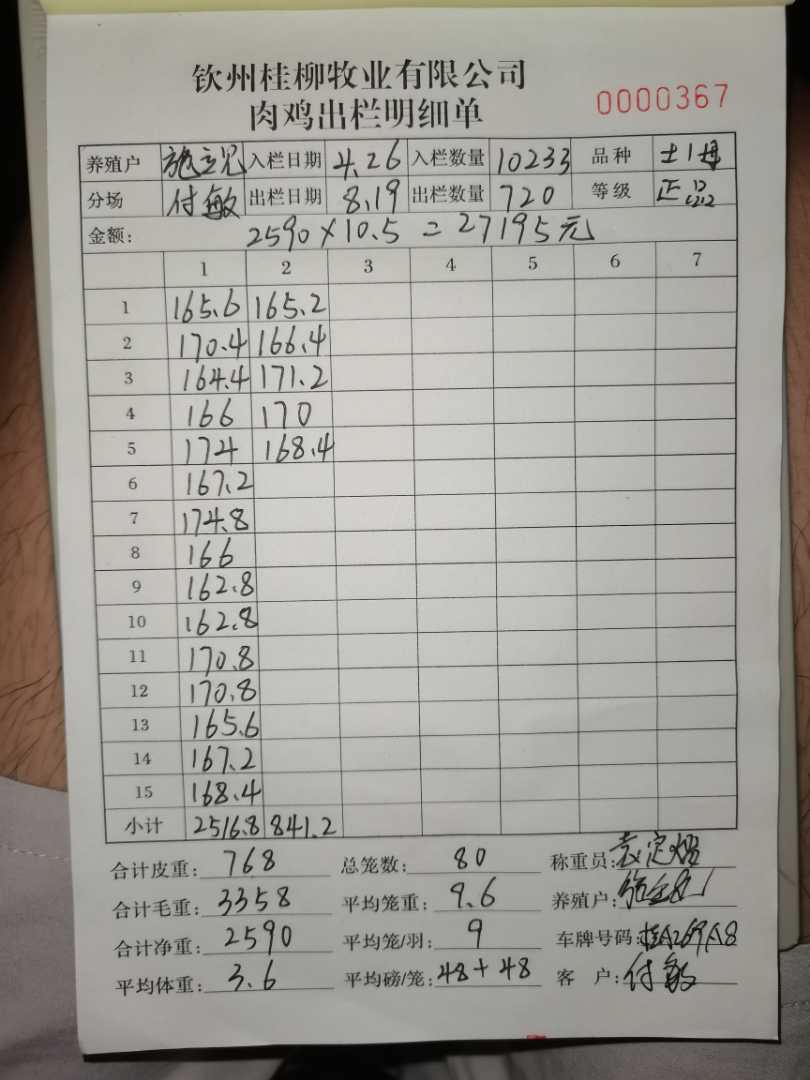 钦州桂柳牧业有限公司
肉鸡出栏明细单
0000367
养殖户 入栏日期 4.26 入栏数量 10233 品种 土1
分场 付敏 出栏日期 8.19 出栏数量 720 等级 正
金额: 2590×10.5=27195元
1 2 3 4 5 6 7
1 165.6 165.2
2 170.4 166.4
3 164.4 171.2
4 166 170
5 174 168.4
6 167.2
7 174.8
8 166
9 162.8
10 162.8
11 170.8
12 170.8
13 165.6
14 167.2
15 168.4
小计 2516.8 841.2
合计皮重: 768 总笼数: 80 称重员:
合计毛重: 3358 平均笼重: 9.6 养殖户:
合计净重: 2590 平均笼/羽: 9 车牌号码:
平均体重: 3.6 平均磅/笼: 48+48 客 户: 付敏